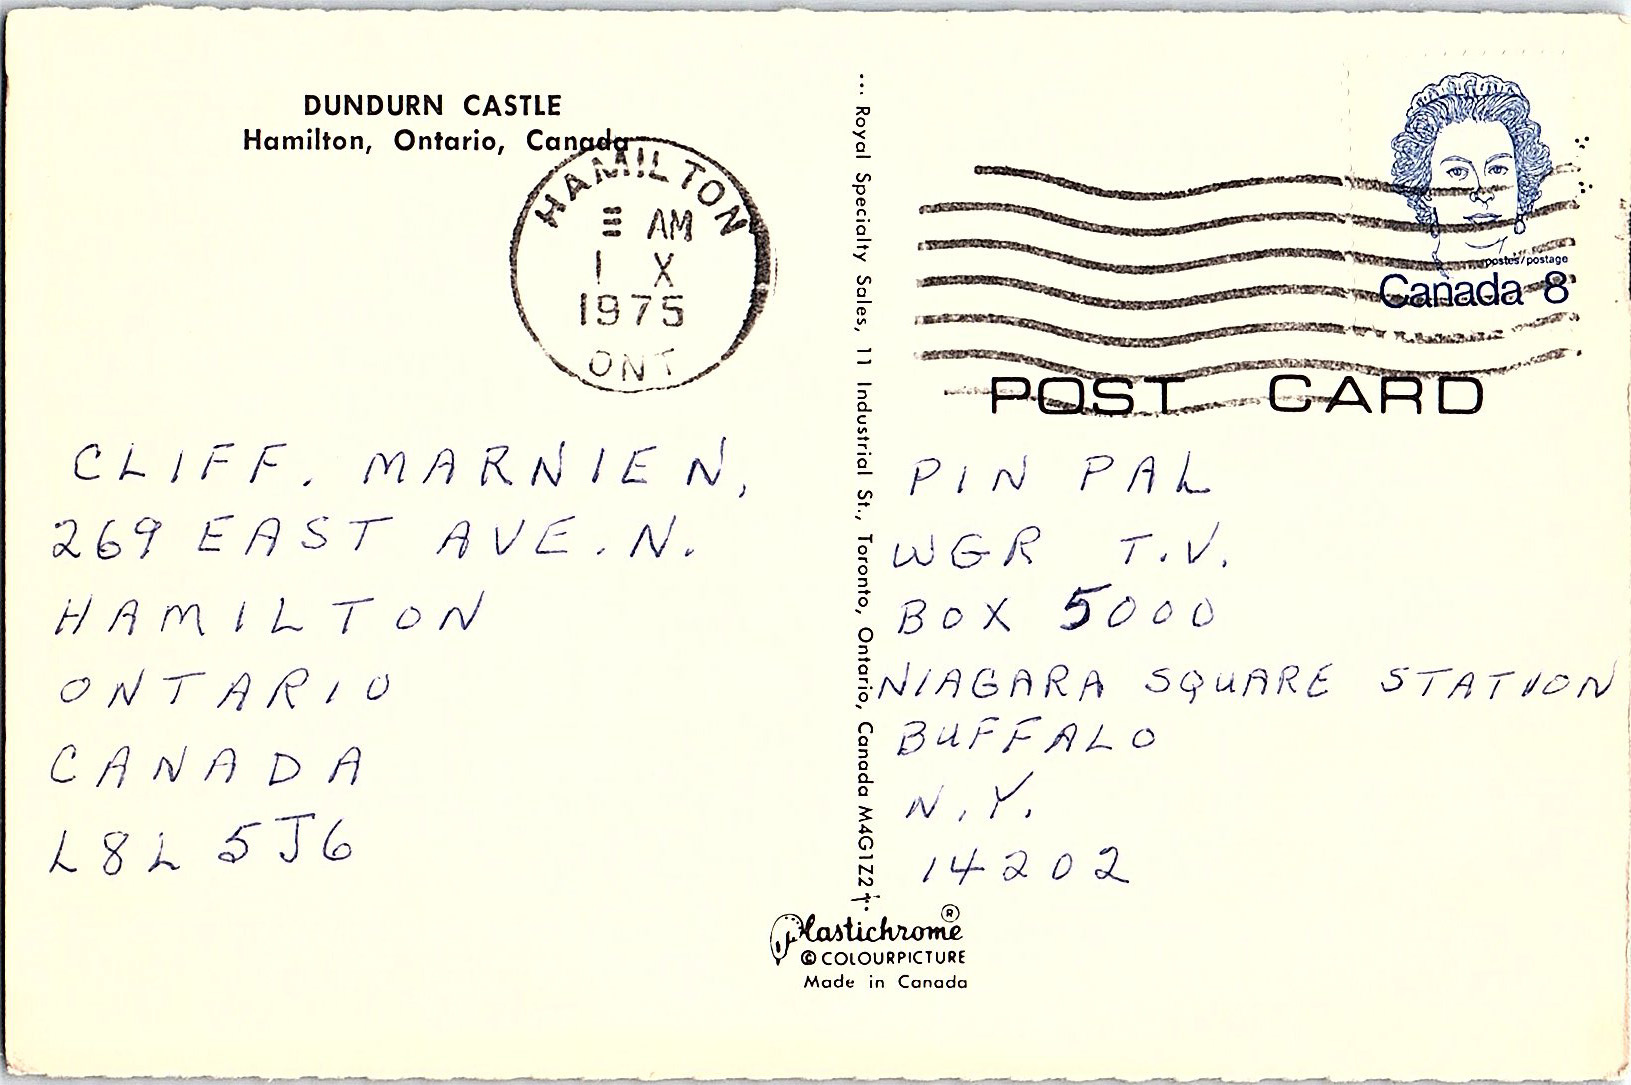 DUNDURN CASTLE
Hamilton, Ontario, Canada
HAMILTON
AM
1 X
1975
ONT
CLIFF. MARNIEN,
269 EAST AVE. N.
HAMILTON
ONTARIO
CANADA
L8L 5J6
... Royal Specialty Sales, 11 Industrial St., Toronto, Ontario, Canada M4G1Z2
postes/postage
Canada 8
POST CARD
PIN PAL
WGR T.V.
BOX 5000
NIAGARA SQUARE STATION
BUFFALO
N.Y.
14202
Plastichrome ®
© COLOURPICTURE
Made in Canada